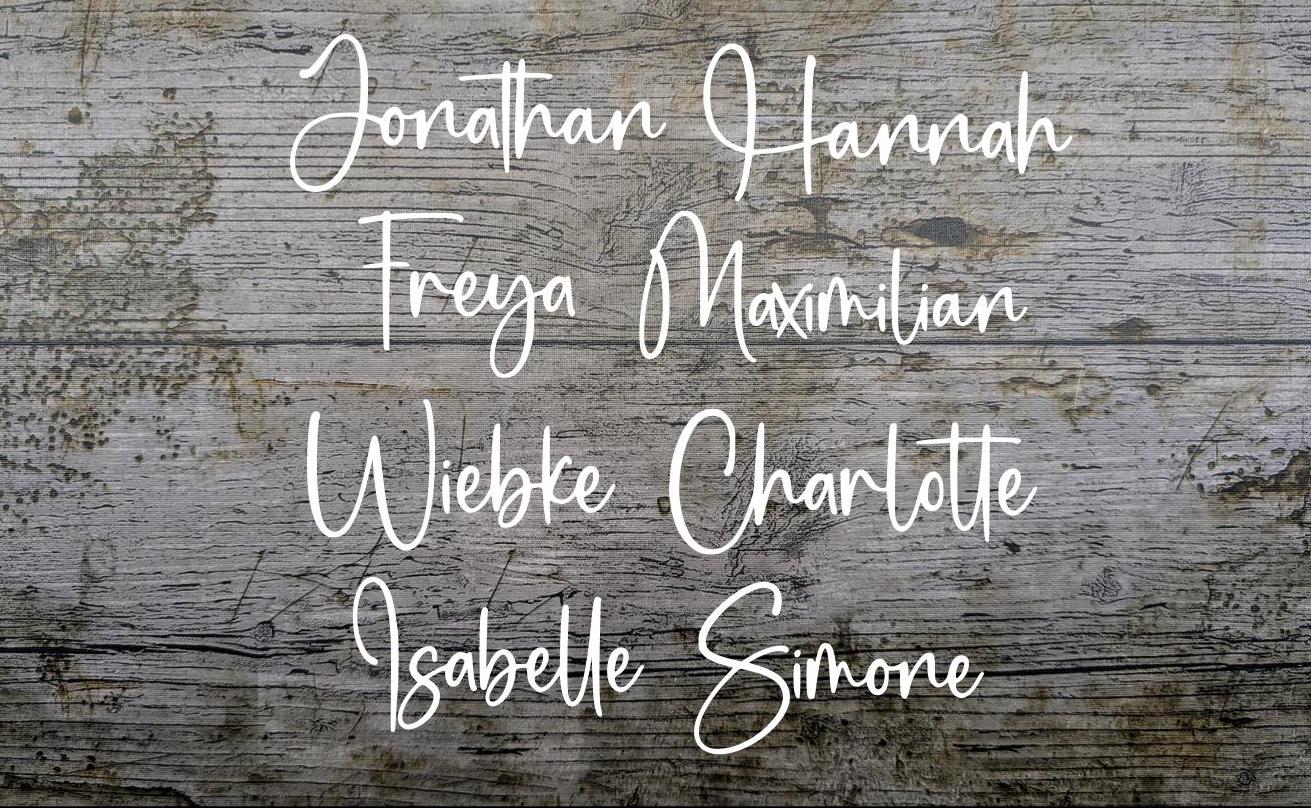 Jonathan Hannah
Freya Maximilian
Wiebke Charlotte
Isabelle Simone